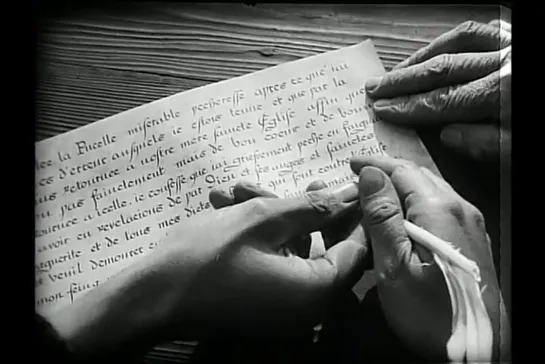 la Pucelle miserable pecheresse apres ce que j'ai
d'erreur auxquels je estois tenue et que par la
retournee a nostre mere saincte Eglise affin que
pas fainctement mais de bon coeur et de bon
a icelle, je confesse que j'ai griefvement peche en faign
avoir eu revelacions de par Dieu et ses anges et sainctes
et de tous mes dicts qui sont contre l'Eglise
veuil demourer en
mon seing